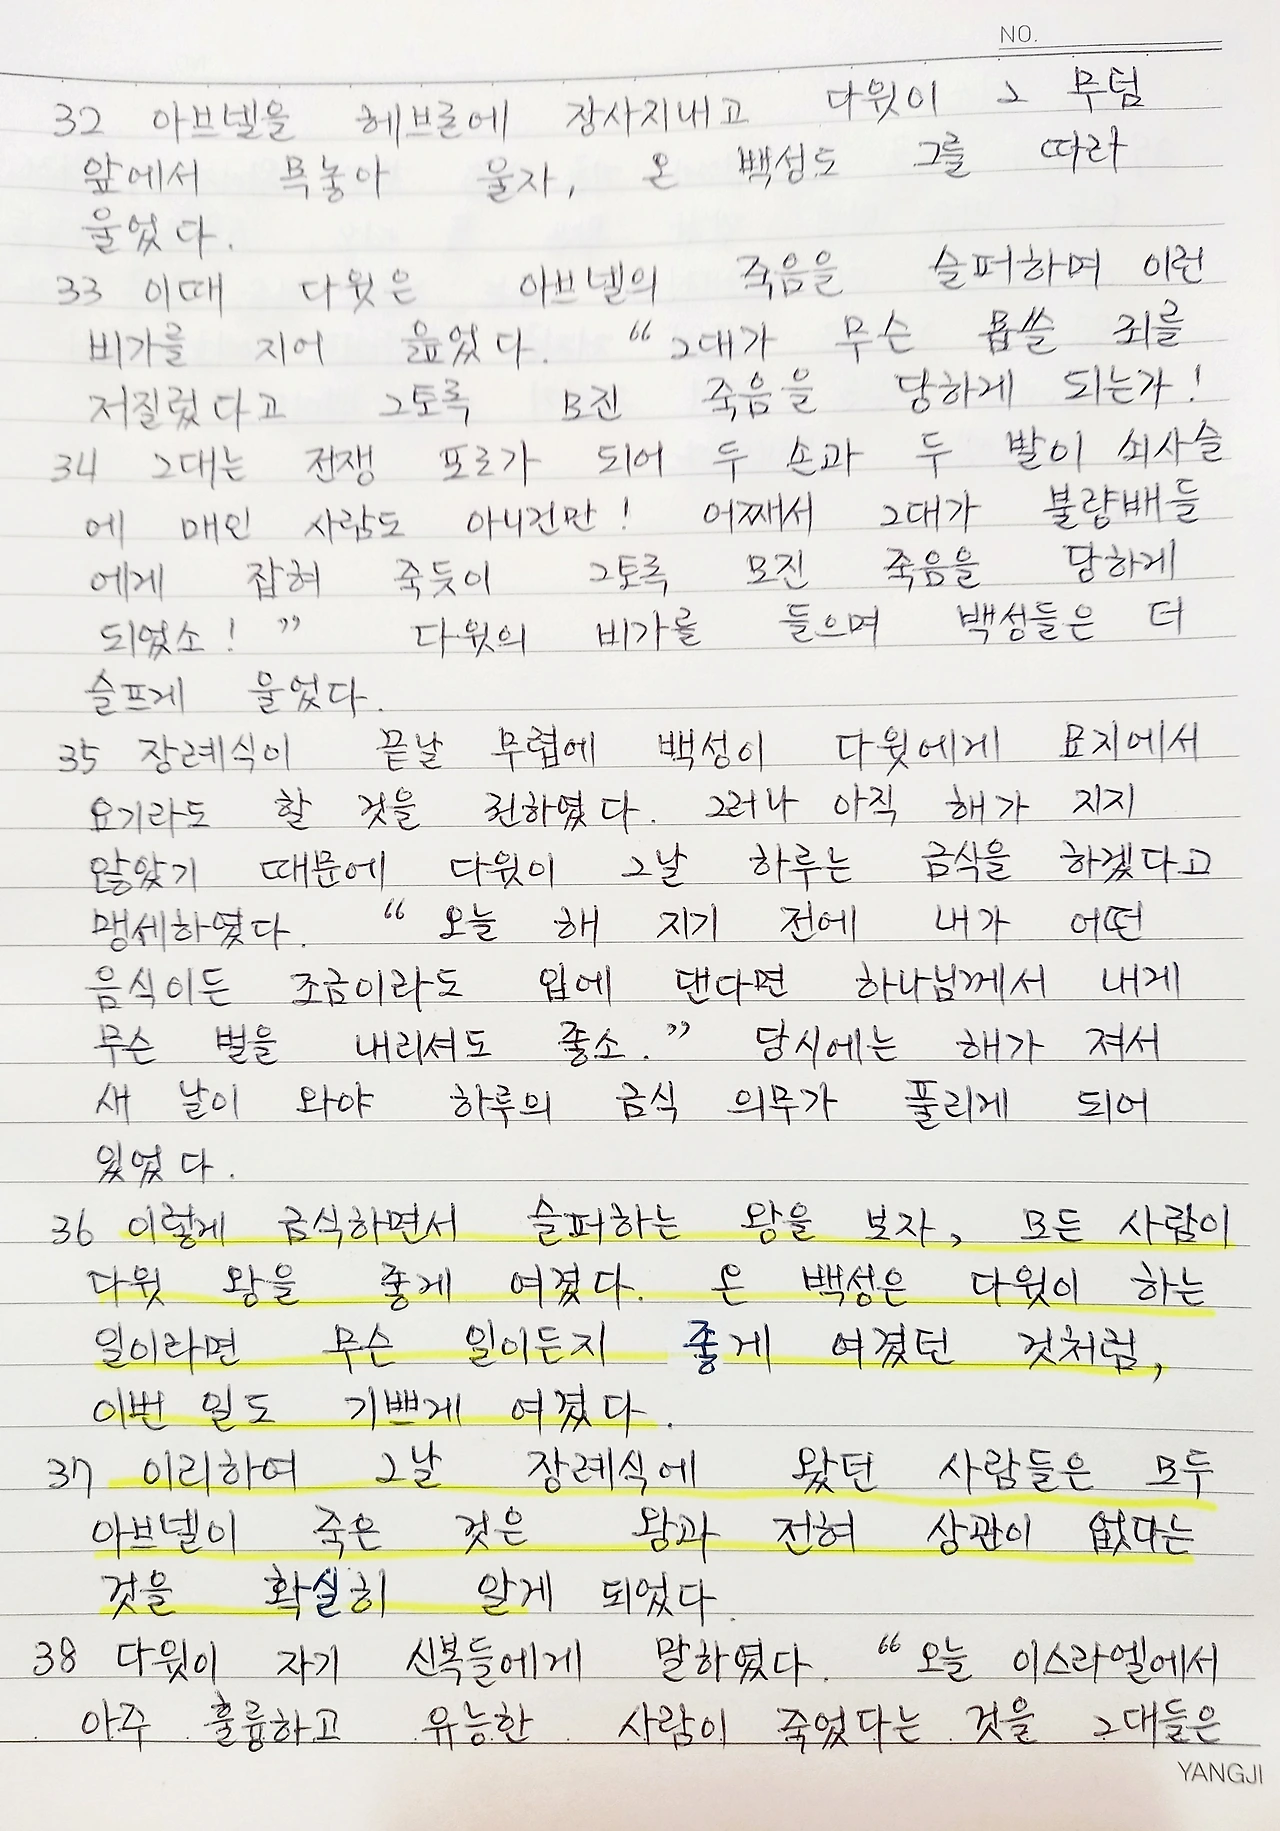 NO.
32 아브넬을 헤브론에 장사지내고 다윗이 그 무덤
앞에서 목놓아 울자, 온 백성도 그를 따라
울었다.
33 이때 다윗은 아브넬의 죽음을 슬퍼하며 이런
비가를 지어 읊었다. “그대가 무슨 몹쓸 죄를
저질렀다고 그토록 모진 죽음을 당하게 되는가!
34 그대는 전쟁 포로가 되어 두 손과 두 발이 쇠사슬
에 매인 사람도 아니건만! 어째서 그대가 불량배들
에게 잡혀 죽듯이 그토록 모진 죽음을 당하게
되었소!” 다윗의 비가를 들으며 백성들은 더
슬프게 울었다.
35 장례식이 끝날 무렵에 백성이 다윗에게 묘지에서
요기라도 할 것을 권하였다. 그러나 아직 해가 지지
않았기 때문에 다윗이 그날 하루는 금식을 하겠다고
맹세하였다. “오늘 해 지기 전에 내가 어떤
음식이든 조금이라도 입에 댄다면 하나님께서 내게
무슨 벌을 내리셔도 좋소.” 당시에는 해가 져서
새 날이 와야 하루의 금식 의무가 풀리게 되어
있었다.
36 이렇게 금식하면서 슬퍼하는 왕을 보자, 모든 사람이
다윗 왕을 좋게 여겼다. 온 백성은 다윗이 하는
일이라면 무슨 일이든지 좋게 여겼던 것처럼,
이번 일도 기쁘게 여겼다.
37 이리하여 그날 장례식에 왔던 사람들은 모두
아브넬이 죽은 것은 왕과 전혀 상관이 없다는
것을 확실히 알게 되었다.
38 다윗이 자기 신복들에게 말하였다. “오늘 이스라엘에서
아주 훌륭하고 유능한 사람이 죽었다는 것을 그대들은
YANGJI